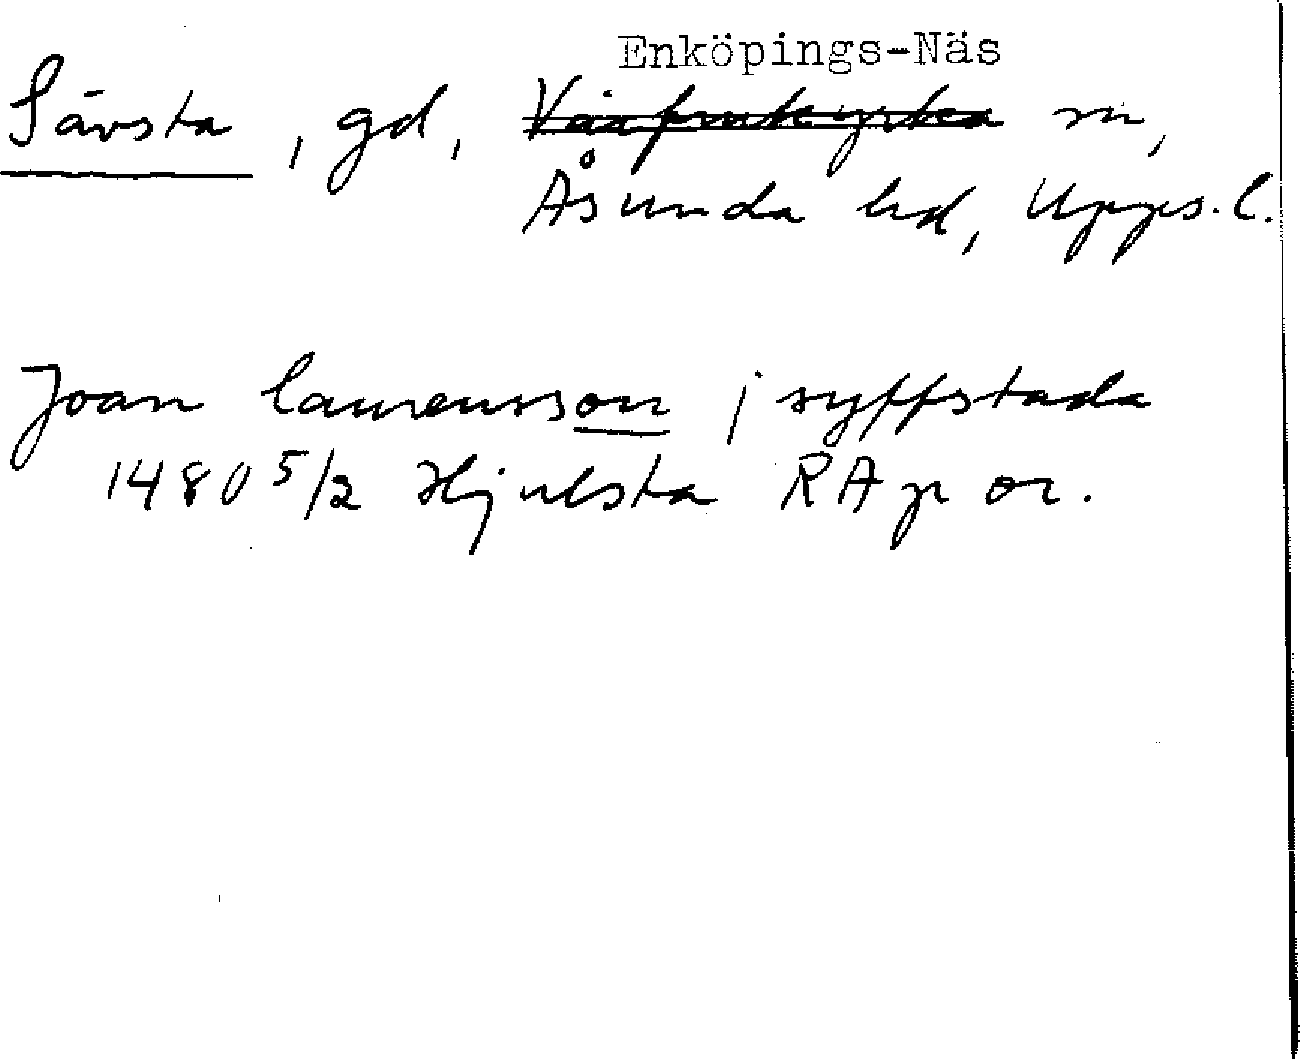 Enköpings-Näs
Sävsta, gd, Vårfrukyrka sn,
Åsunda hd, Upps. l.
Joan laurensson j syffstada
1480 5/2 Hjulsta RAp or.